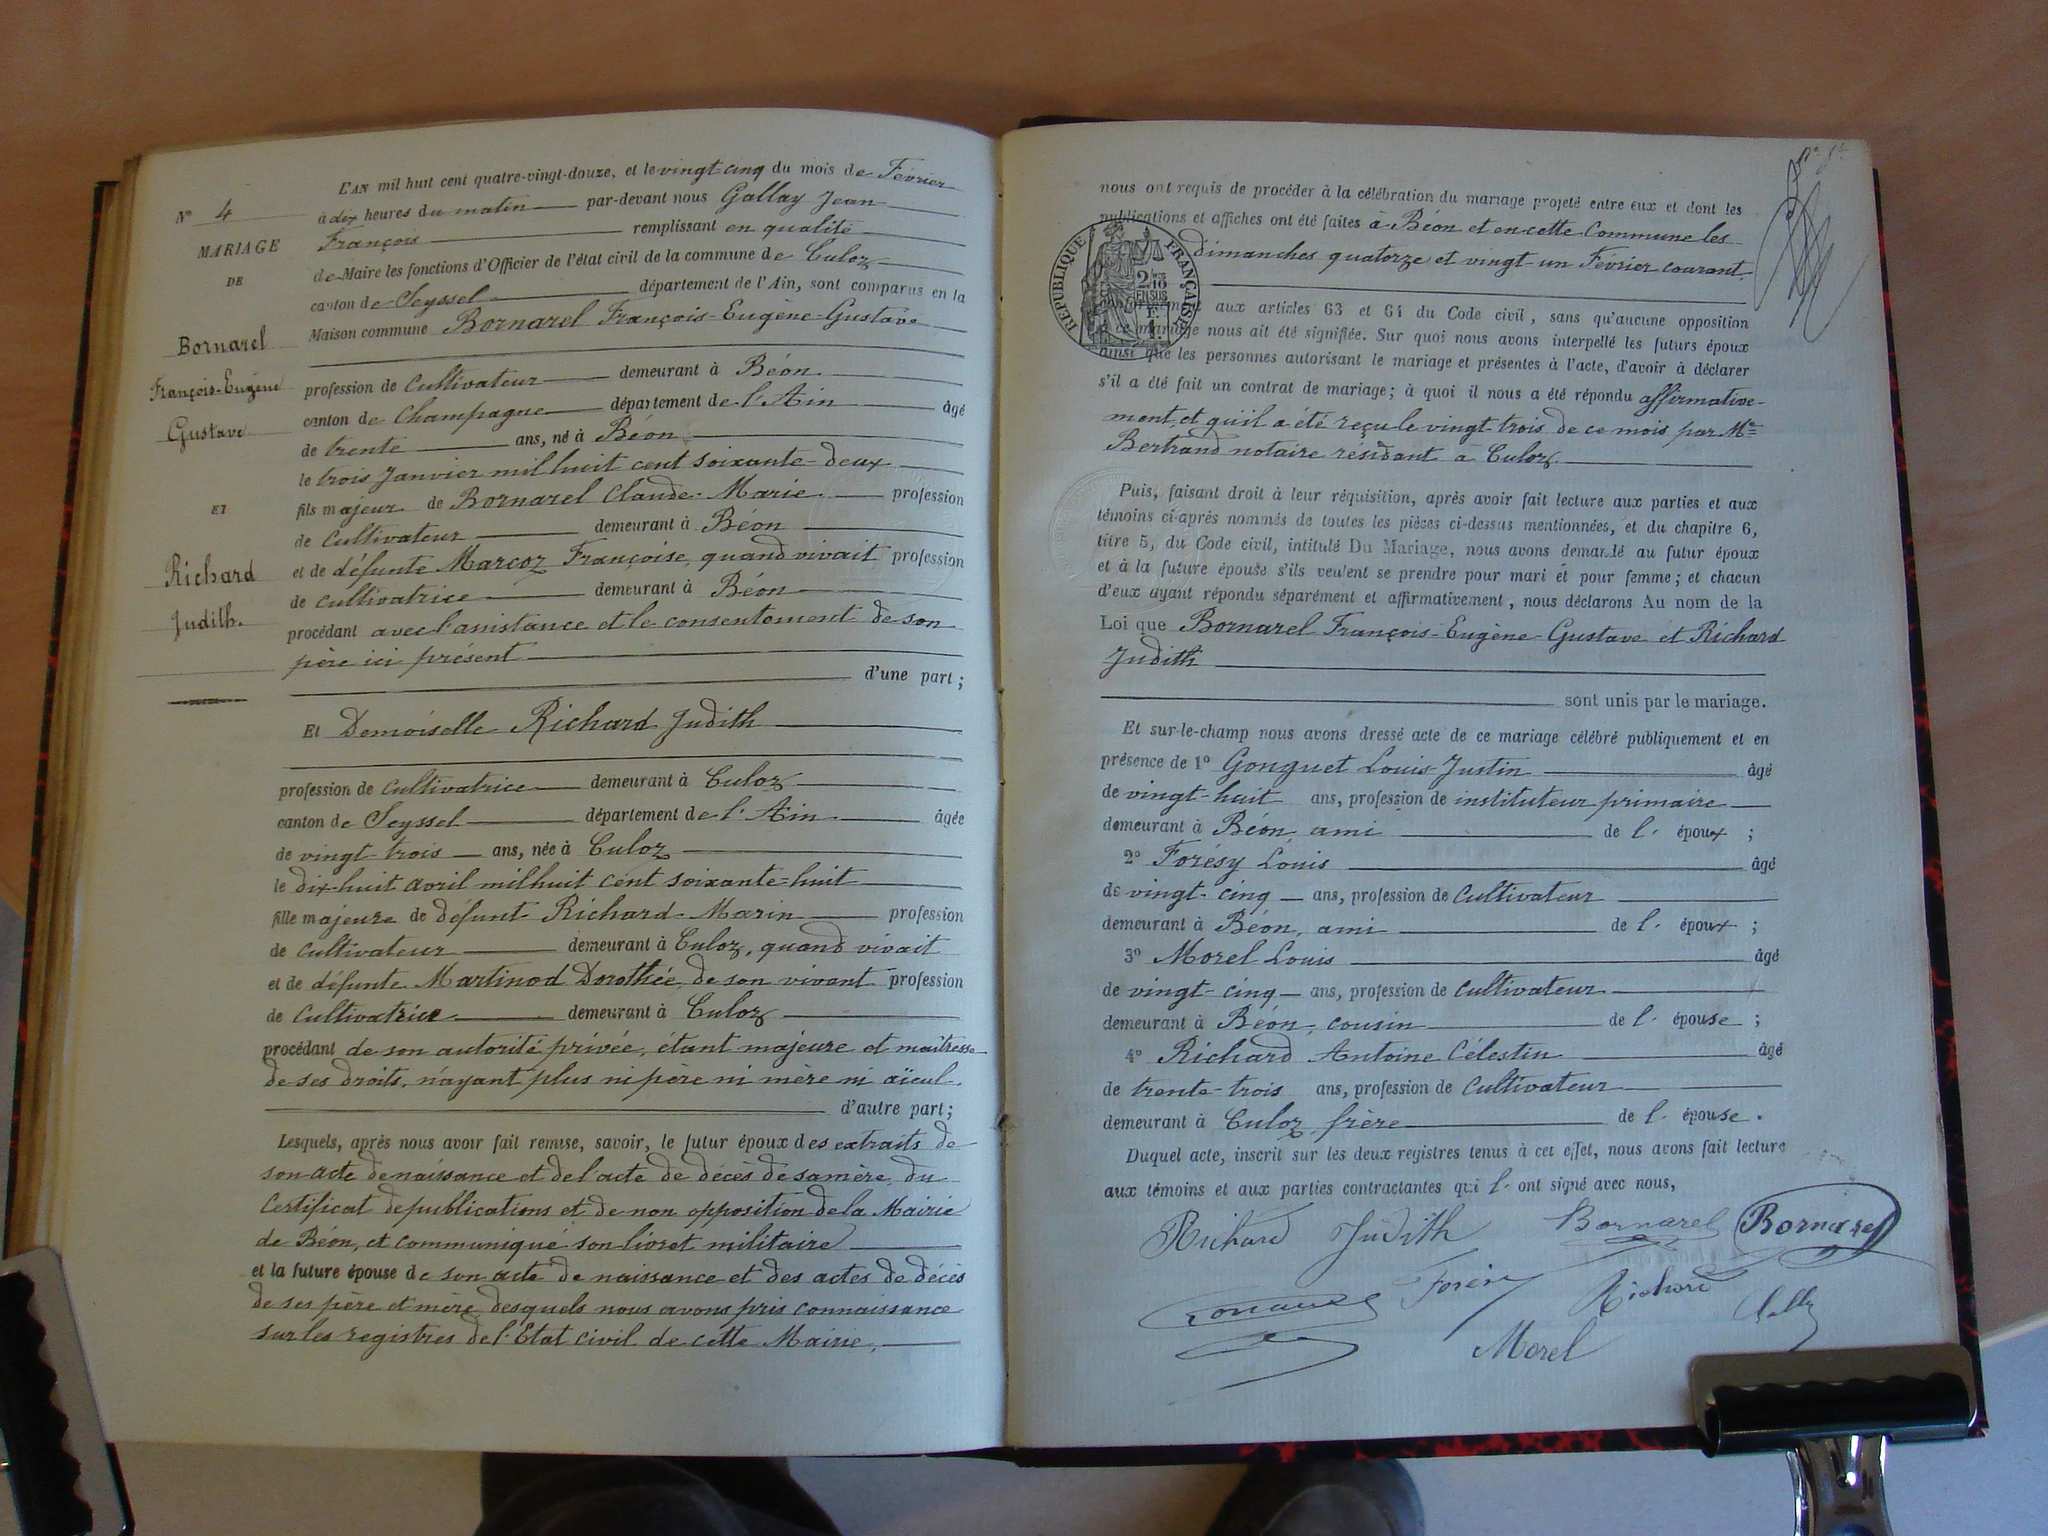 L'AN mil huit cent quatre-vingt-douze, et le vingt cinq du mois de Février
N° 4
à dix heures du matin par-devant nous Gallay Jean
MARIAGE
François remplissant en qualité
DE
de Maire les fonctions d'Officier de l'état civil de la commune de Culoz
canton de Seyssel département de l'Ain, sont comparus en la
Bornarel
Maison commune Bornarel François-Eugène-Gustave
François-Eugène
profession de Cultivateur demeurant à Béon
Gustave
canton de Champagne département de l'Ain âgé
de trente ans, né à Béon
le trois Janvier mil huit cent soixante-deux
ET
fils majeur de Bornarel Claude-Marie profession
de Cultivateur demeurant à Béon
Richard
et de défunte Marcoz Françoise, quand vivait profession
de cultivatrice demeurant à Béon
Judith.
procédant avec l'assistance et le consentement de son
père ici présent
d'une part;
Et Demoiselle Richard Judith
profession de cultivatrice demeurant à Culoz
canton de Seyssel département de l'Ain âgée
de vingt trois ans, née à Culoz
le dix-huit avril mil huit cent soixante-huit
fille majeure de défunt Richard Marin profession
de cultivateur demeurant à Culoz, quand vivait
et de défunte Martinod Dorothée, de son vivant profession
de Cultivatrice demeurant à Culoz
procédant de son autorité privée, étant majeure et maîtresse
de ses droits, n'ayant plus ni père ni mère ni aïeul.
d'autre part;
Lesquels, après nous avoir fait remise, savoir, le futur époux des extraits de
son acte de naissance et de l'acte de décès de sa mère, du
Certificat de publications et de non opposition de la Mairie
de Béon, et communiqué son livret militaire
et la future épouse de son acte de naissance et des actes de décès
de ses père et mère desquels nous avons pris connaissance
sur les registres de l'Etat civil de cette Mairie,
nous ont requis de procéder à la célébration du mariage projeté entre eux et dont les
publications et affiches ont été faites à Béon et en cette Commune les
dimanches quatorze et vingt-un Février courant
RÉPUBLIQUE FRANÇAISE
2/10
EN SUS
aux articles 63 et 64 du Code civil, sans qu'aucune opposition
à ce mariage nous ait été signifiée. Sur quoi nous avons interpellé les futurs époux
ainsi que les personnes autorisant le mariage et présentes à l'acte, d'avoir à déclarer
s'il a été fait un contrat de mariage; à quoi il nous a été répondu affirmative-
ment, et qu'il a été reçu le vingt trois de ce mois par Me
Bertrand notaire résidant à Culoz
Puis, faisant droit à leur réquisition, après avoir fait lecture aux parties et aux
témoins ci-après nommés de toutes les pièces ci-dessus mentionnées, et du chapitre 6,
titre 5, du Code civil, intitulé Du Mariage, nous avons demandé au futur époux
et à la future épouse s'ils veulent se prendre pour mari et pour femme; et chacun
d'eux ayant répondu séparément et affirmativement, nous déclarons Au nom de la
Loi que Bornarel François-Eugène-Gustave et Richard
Judith
sont unis par le mariage.
Et sur-le-champ nous avons dressé acte de ce mariage célébré publiquement et en
présence de 1° Gonguet Louis-Justin âgé
de vingt-huit ans, profession de instituteur primaire
demeurant à Béon ami de l' époux ;
2° Forésy Louis âgé
de vingt-cinq ans, profession de Cultivateur
demeurant à Béon, ami de l' époux ;
3° Morel Louis âgé
de vingt-cinq ans, profession de Cultivateur
demeurant à Béon, cousin de l' épouse ;
4° Richard Antoine Célestin âgé
de trente-trois ans, profession de Cultivateur
demeurant à Culoz frère de l' épouse.
Duquel acte, inscrit sur les deux registres tenus à cet effet, nous avons fait lecture
aux témoins et aux parties contractantes qui l' ont signé avec nous,
Richard Judith Bornarel Bornarel
Richard
Morel